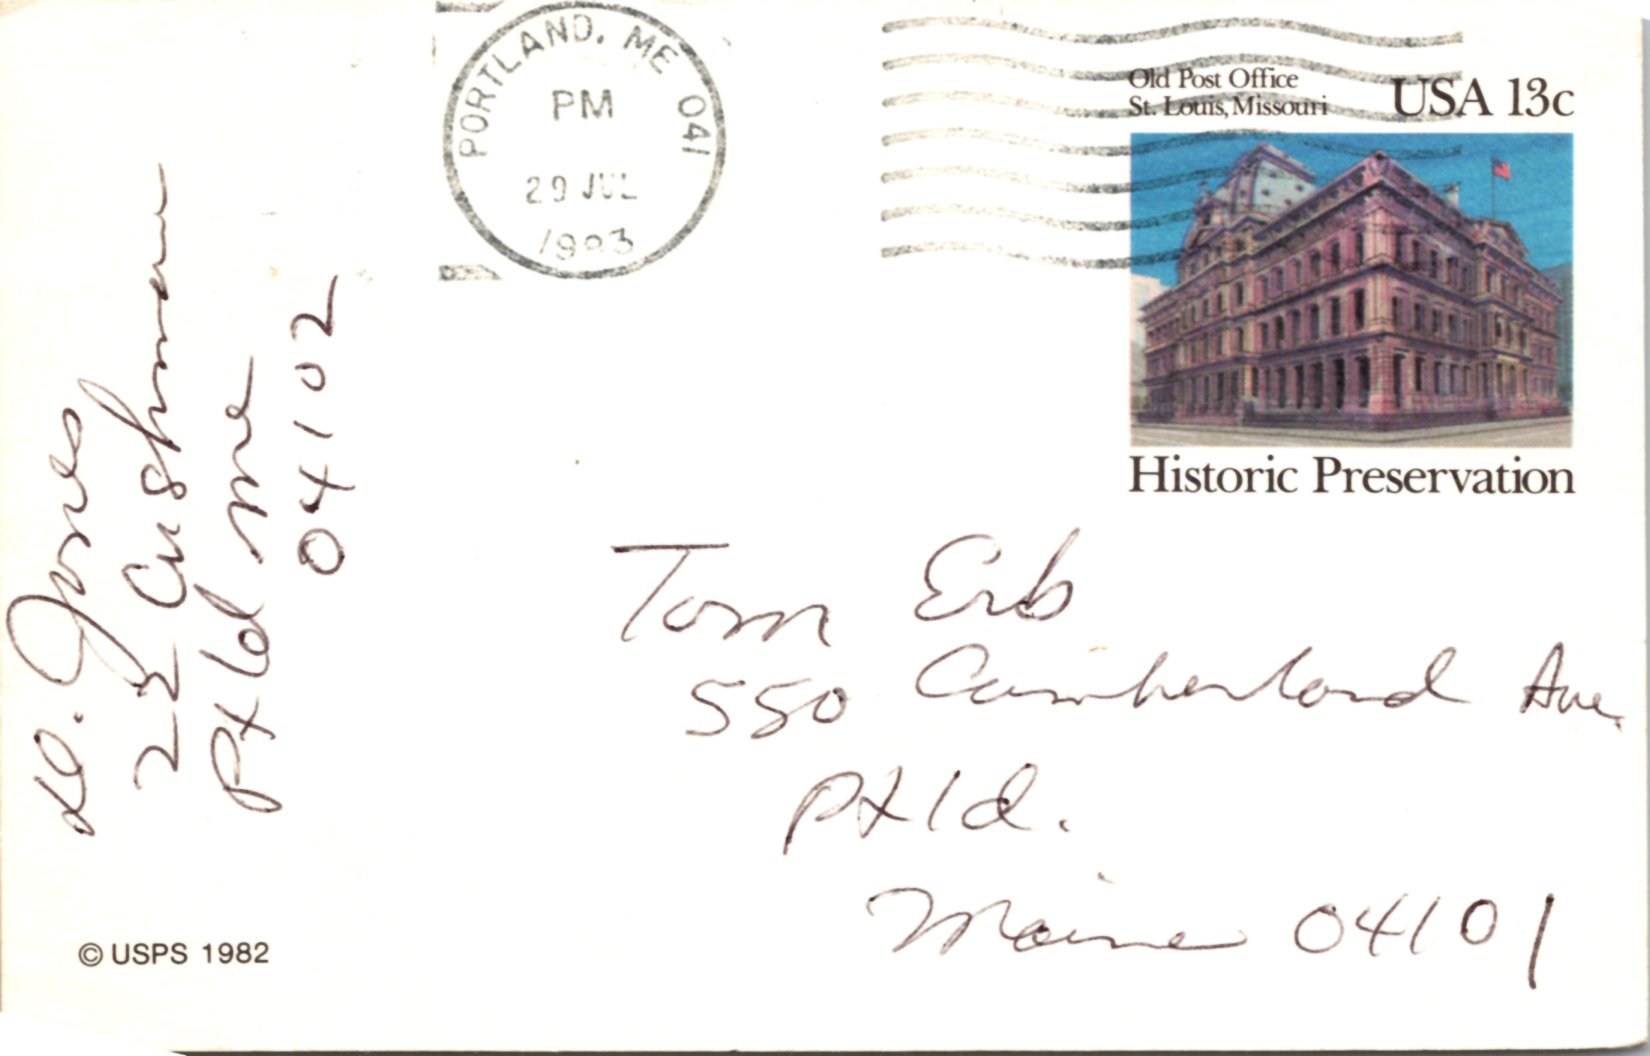 PORTLAND, ME 041
PM
29 JUL
1983
Old Post Office
St. Louis, Missouri
USA 13c
Historic Preservation
D. Jones
22 Cushman
Ptld me
04102
Tom Erb
550 Cumberland Ave.
Ptld.
Maine 04101
© USPS 1982